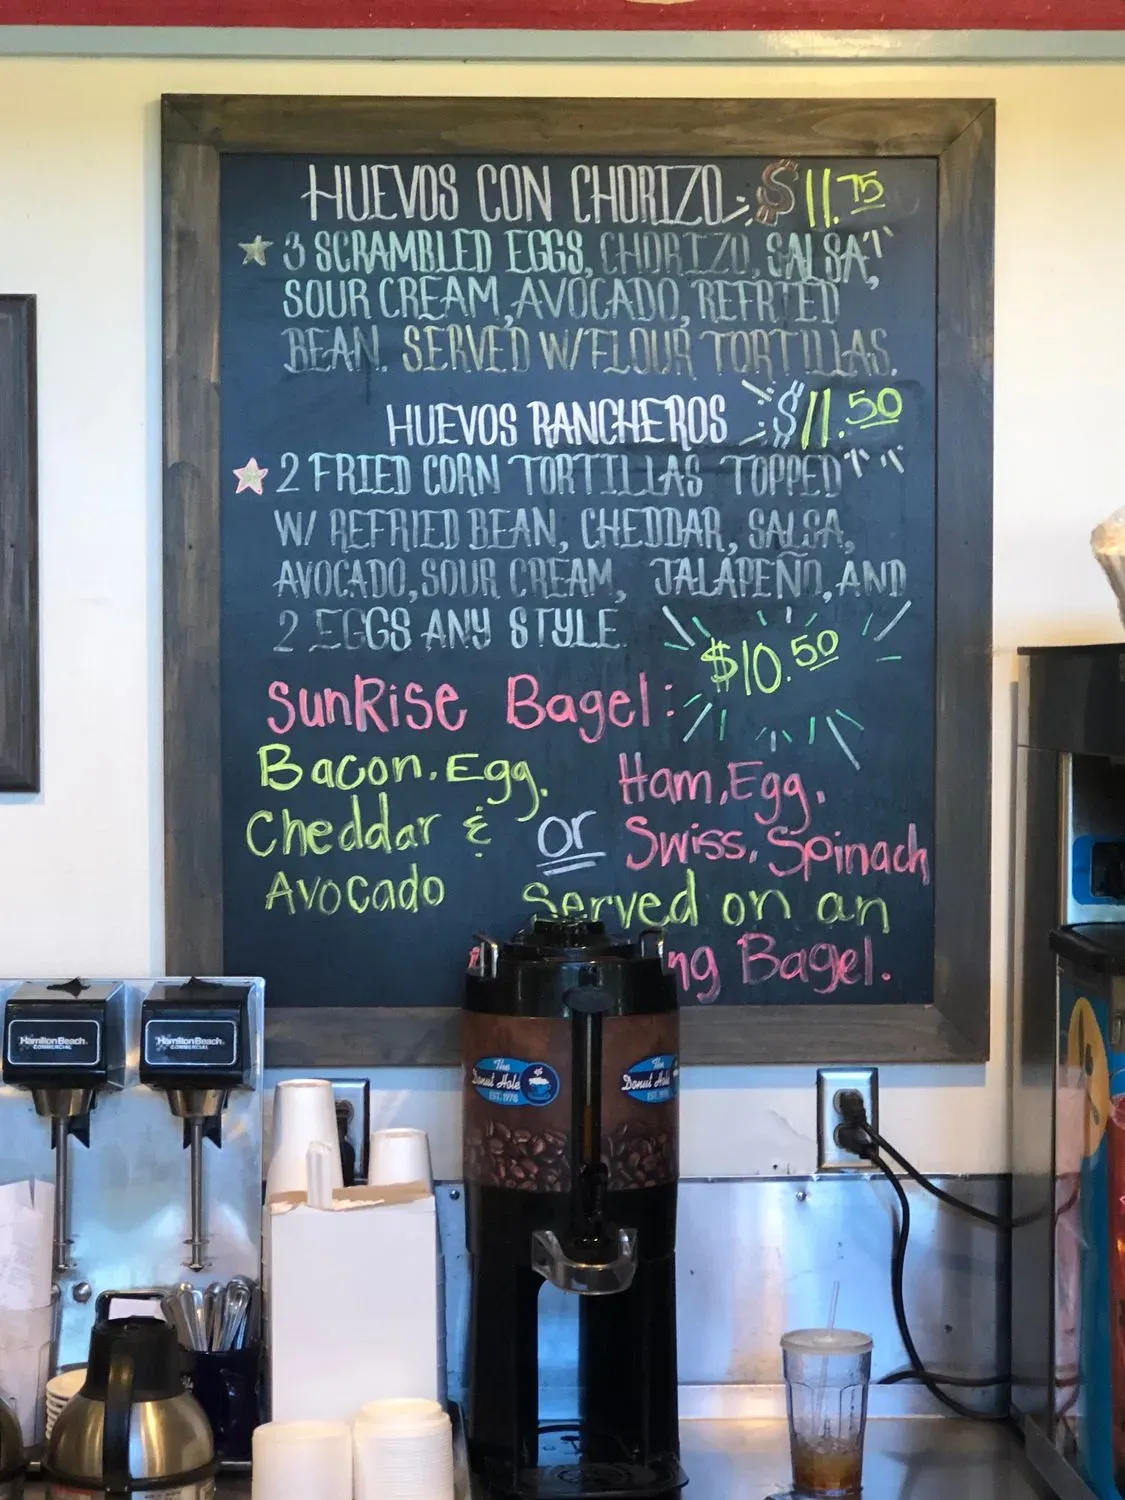 HUEVOS CON CHORIZO $11.75
3 SCRAMBLED EGGS, CHORIZO, SALSA,
SOUR CREAM, AVOCADO, REFRIED
BEAN. SERVED W/FLOUR TORTILLAS.
HUEVOS RANCHEROS $11.50
2 FRIED CORN TORTILLAS TOPPED
W/ REFRIED BEAN, CHEDDAR, SALSA,
AVOCADO, SOUR CREAM, JALAPEÑO, AND
2 EGGS ANY STYLE.
$10.50
SunRise Bagel:
Bacon, Egg,
Cheddar &
Avocado
or
Ham, Egg,
Swiss, Spinach
Served on an
Bagel.
Hamilton Beach
COMMERCIAL
Hamilton Beach
COMMERCIAL
The
Donut Hole
EST. 1978
The
Donut Hole
EST. 1978